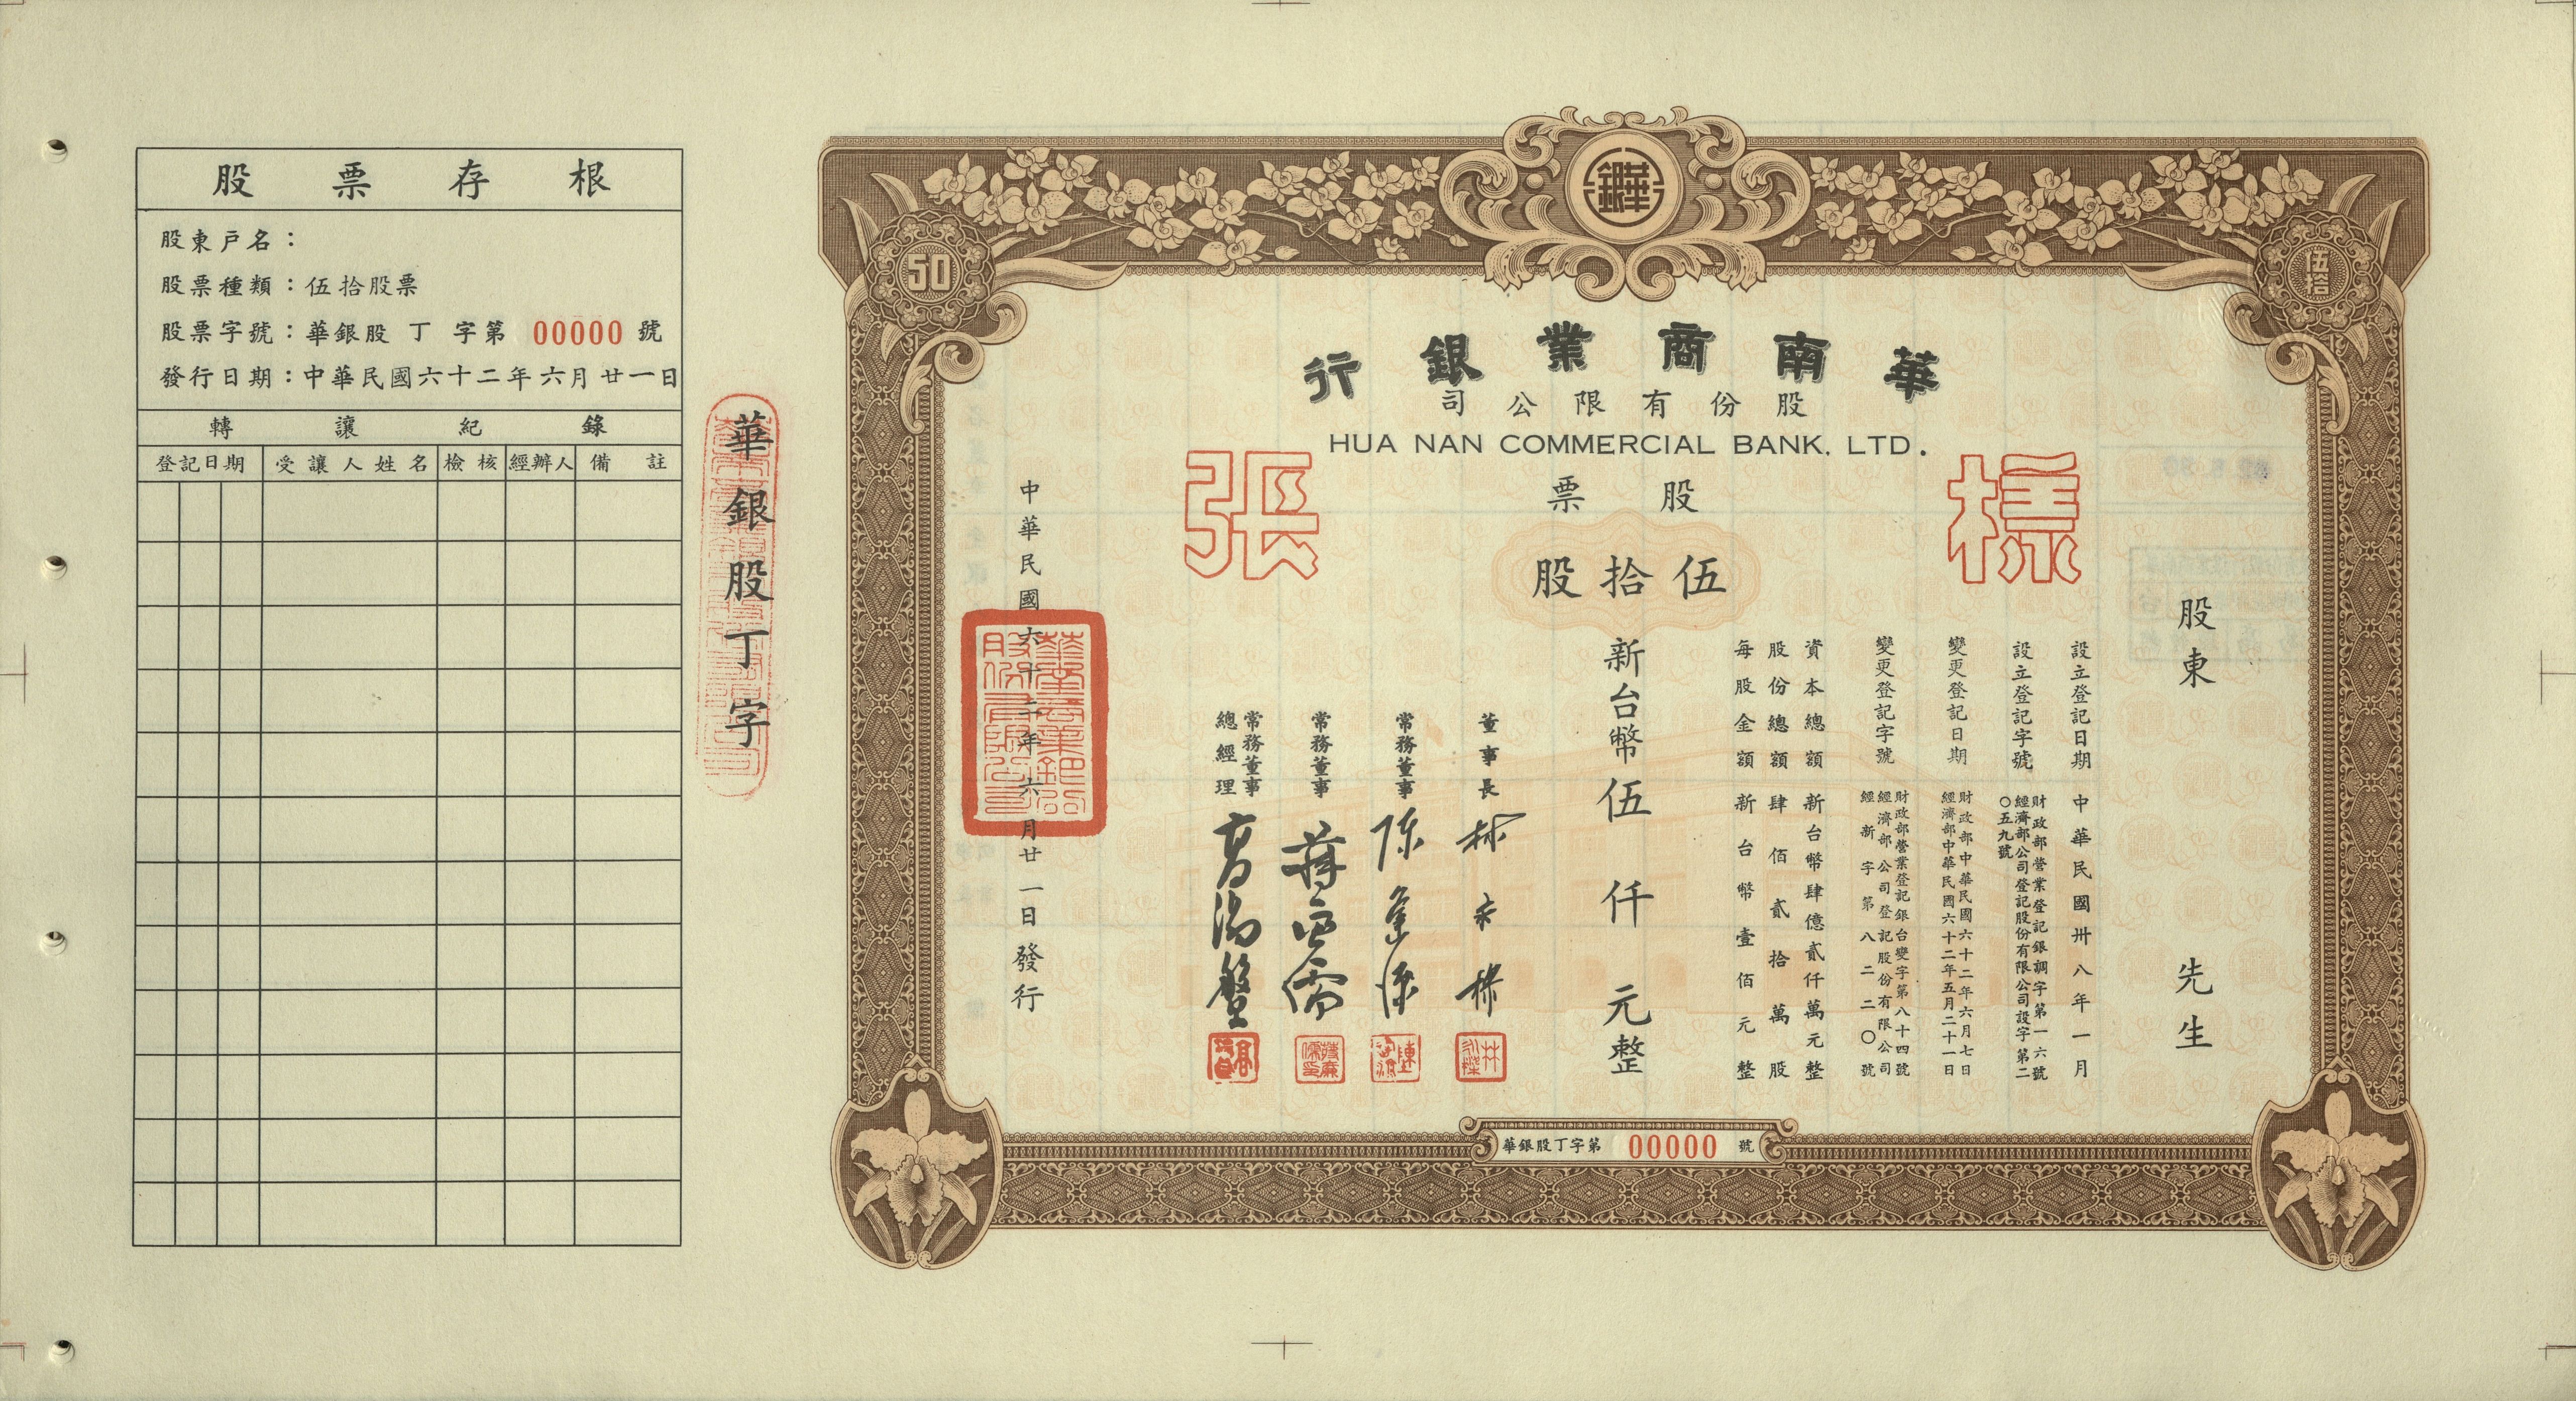 股票存根
股東戶名：
股票種類：伍拾股票
股票字號：華銀股 丁 字第 00000 號
發行日期：中華民國六十二年六月廿一日
轉讓紀錄
登記日期 受讓人姓名 檢核 經辦人 備註
華銀股丁字
50
伍拾
華南商業銀行
股份有限公司
HUA NAN COMMERCIAL BANK, LTD.
樣張
股票
伍拾股
股東 先生
設立登記日期 中華民國卅八年一月
設立登記字號 財政部營業登記銀調字第一六號
經濟部公司登記股份有限公司設字第二
〇五九號
變更登記日期 財政部中華民國六十二年六月七日
經濟部中華民國六十二年五月二十一日
變更登記字號 財政部營業登記銀台變字第八十四號
經濟部公司登記股份有限公司
經新字第八二二〇號
資本總額 新台幣肆億貳仟萬元整
股份總額 肆佰貳拾萬股
每股金額 新台幣壹佰元整
新台幣伍仟元整
董事長
常務董事 陳
常務董事 蔣
常務董事
總經理 高
中華民國六十二年六月廿一日發行
華南商業銀行
股份有限公司
華銀股丁字第 00000 號